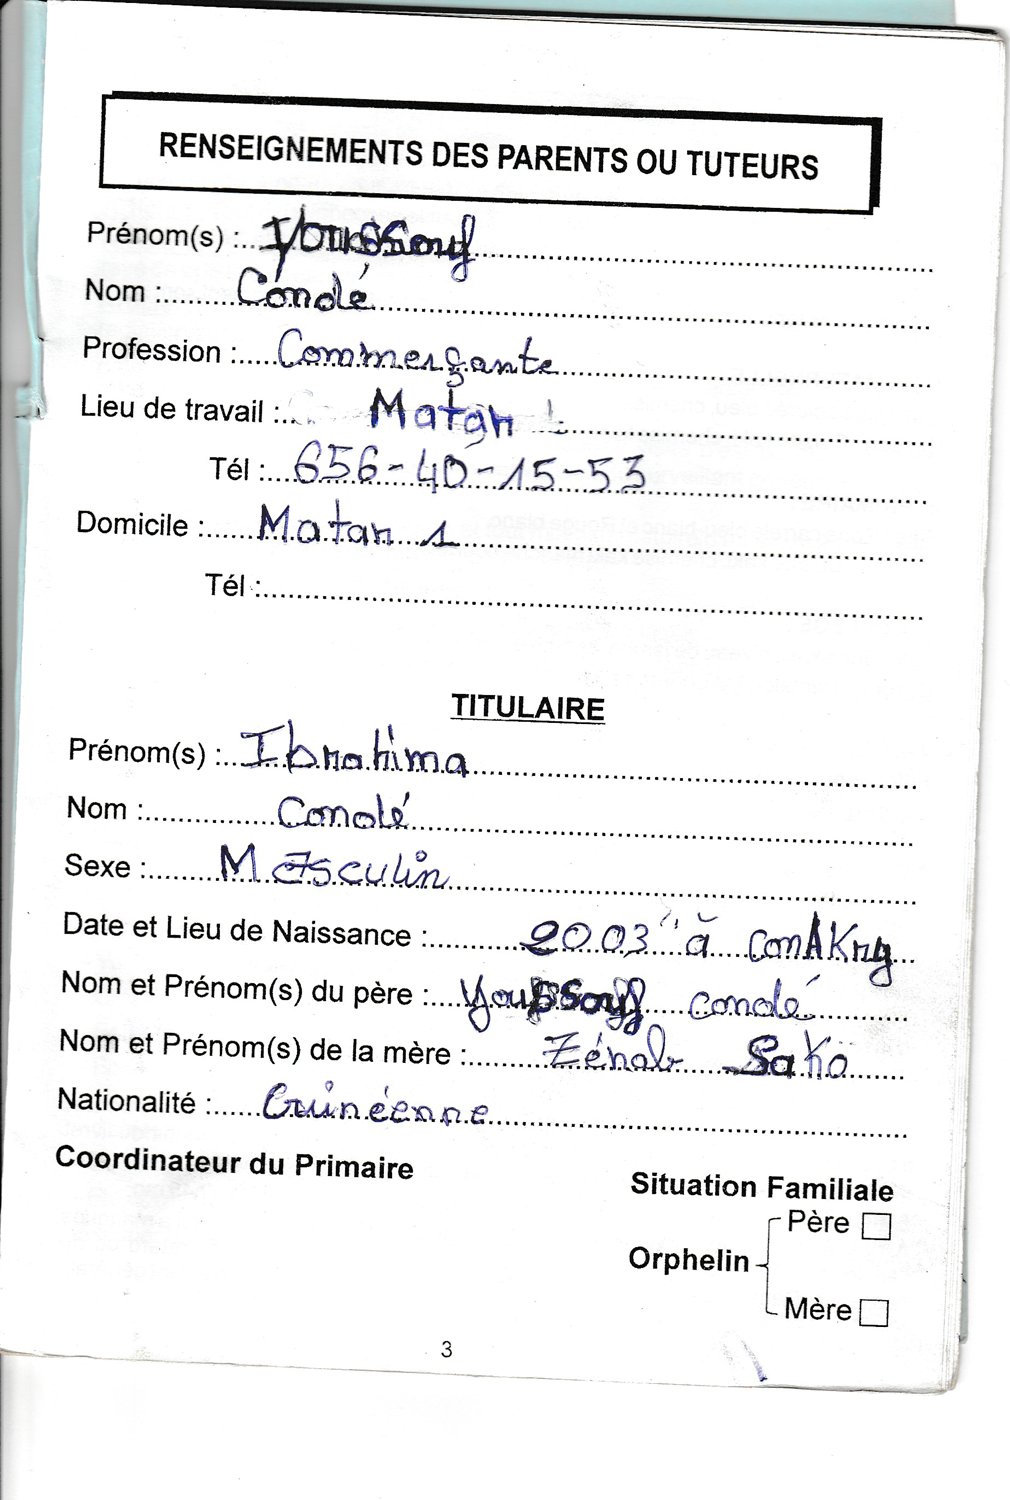 RENSEIGNEMENTS DES PARENTS OU TUTEURS
Prénom(s) : Youssouf
Nom : Condé
Profession : Commerçante
Lieu de travail : Matan
Tél : 656-40-15-53
Domicile : Matan 1
Tél :
TITULAIRE
Prénom(s) : Ibrahima
Nom : Condé
Sexe : Masculin
Date et Lieu de Naissance : 2003 à ConAKry
Nom et Prénom(s) du père : Youssouf Condé
Nom et Prénom(s) de la mère : Zénab SaKo
Nationalité : Guinéenne
Coordinateur du Primaire
Situation Familiale
Père
Orphelin
Mère
3